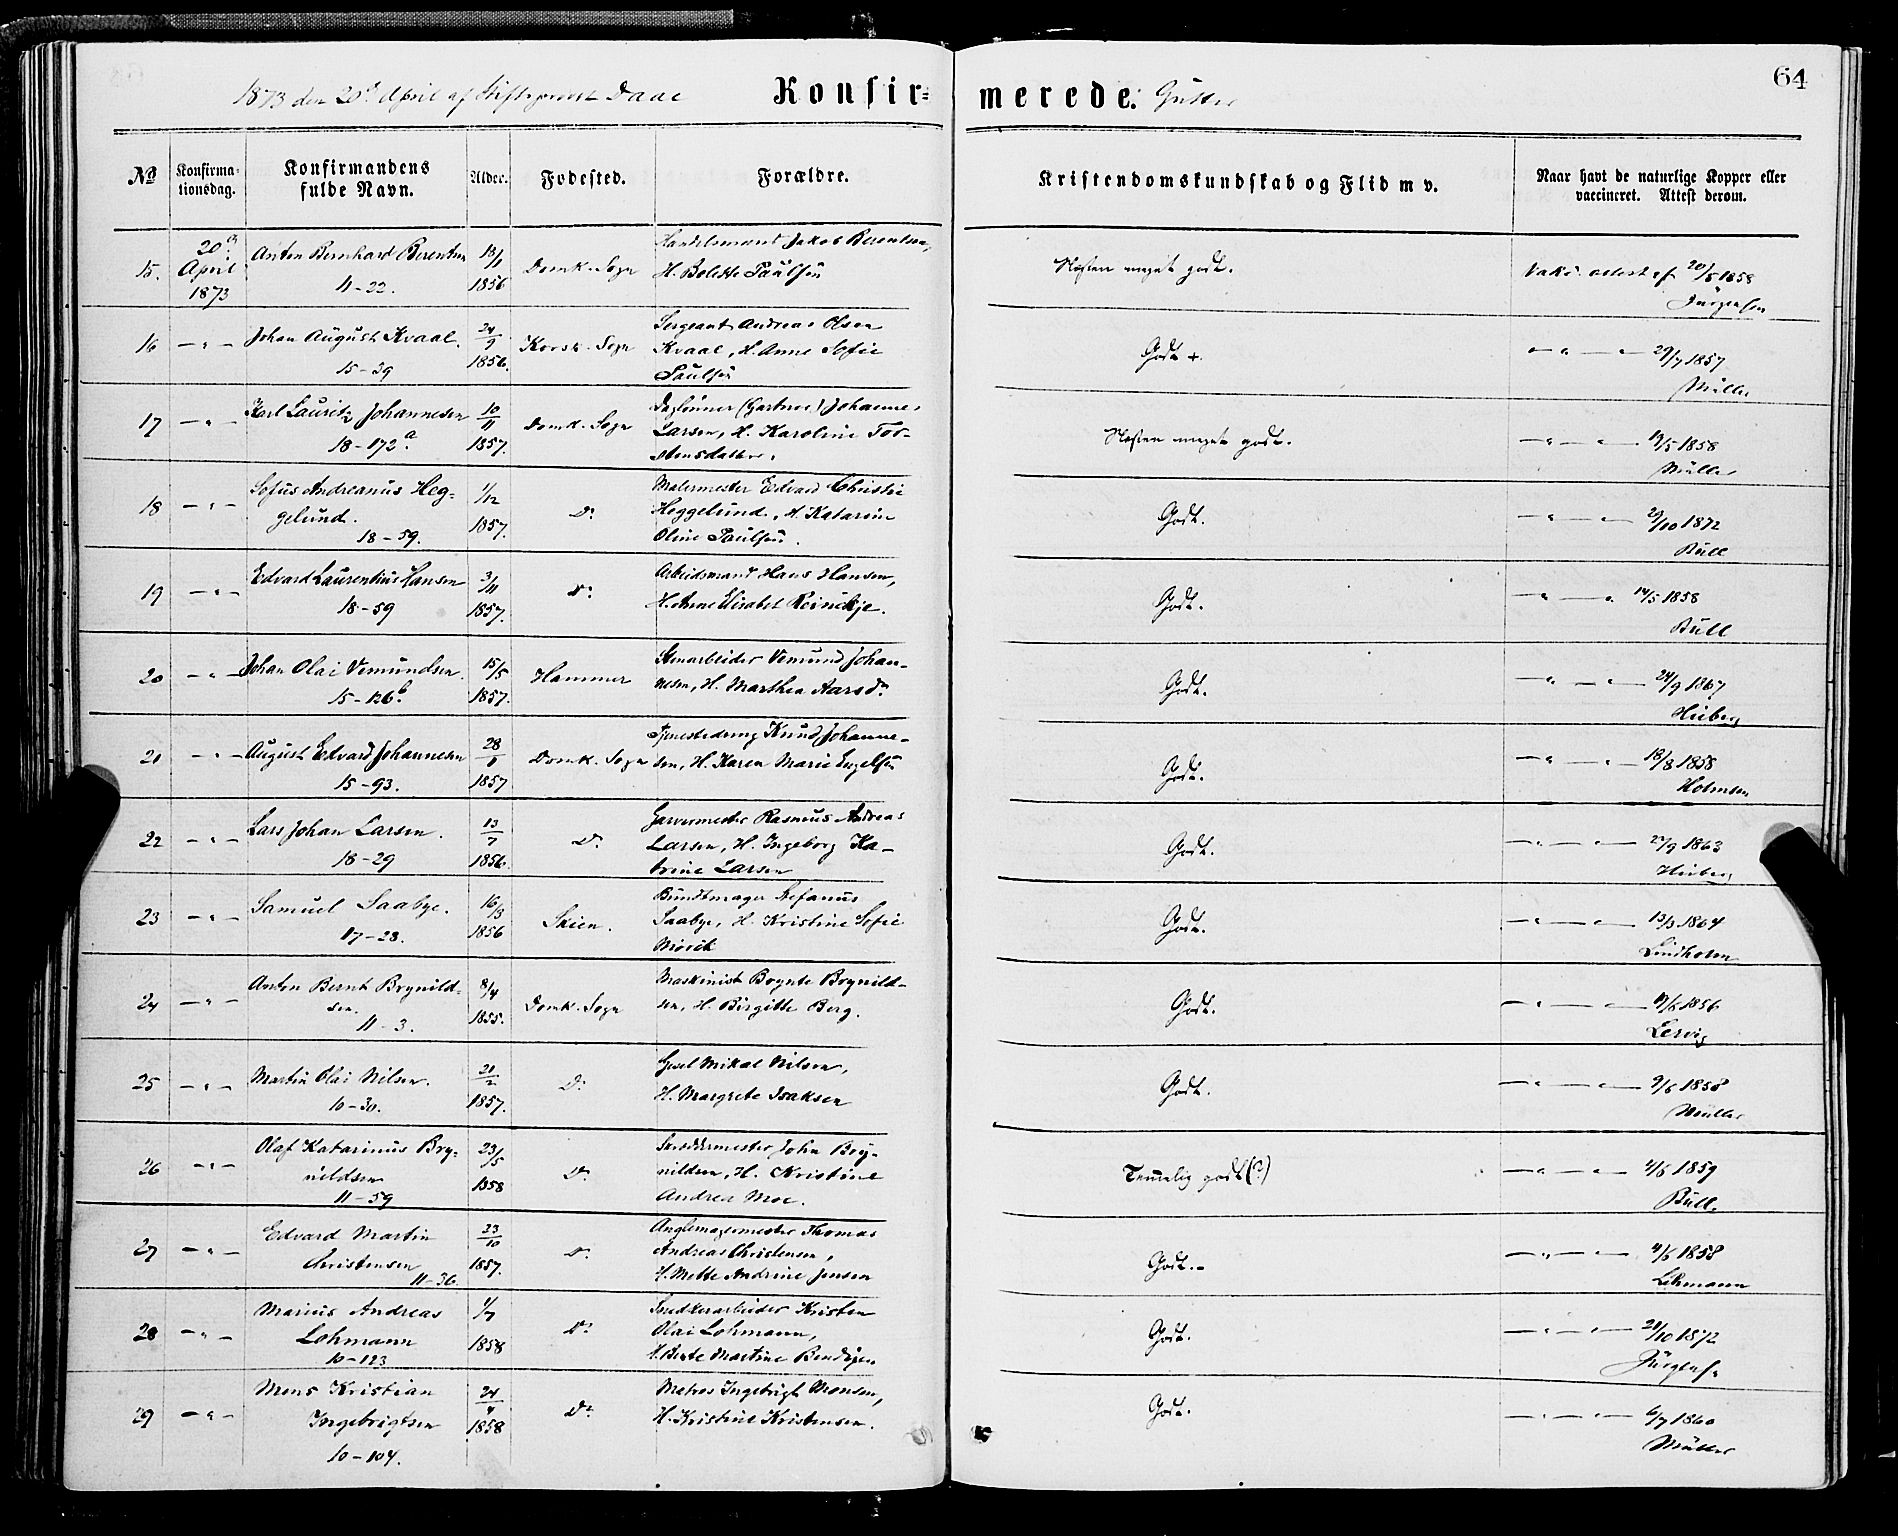 64
1873 den 20d April af Stiftsprovst Daae Konfir=merede: Gutter
No
Konfirma-
tionsdag.
Konfirmandens
fulde Navn.
Alder.
Fødested.
Forældre.
Kristendomskundskab og Flid m v.
Naar havt de naturlige Kopper eller
vaccineret. Attest derom.
15. 20d April 1873
Anton Bernhard Berentsen
11-22.
1856
Domk. Sogn
Handelsmand Jakob Berentsen,
H. Bolette Paulsen
Næsten meget godt.
Vakc. attest af 20/5 1858
Jürgensen
16 - " -
Johan August Kvaal.
15-39
24/9 1856.
Korsk. Sogn
Sergeant Andreas Olsen
Kvaal, H. Anne Sofie
Paulsen
Godt +.
- " - " - 29/7 1857
Müller
17 - " -
Karl Lauritz Johannesen
18-172a
10/11 1857.
Domk. Sogn
Daglønner (Gartner) Johannes
Larsen, H. Karoline Tor-
stensdatter.
Næsten meget godt.
- " - " - 19/5 1858
Müller
18 - " -
Sofus Andreanus Heg=
gelund.
18-59.
1/12 1857.
Do
Malermester Edvard Christie
Heggelund, H. Katarine
Oline Paulsen.
Godt.
- " - " - 29/10 1872
Bull
19 - " -
Edvard Laurentius Hansen
18-59
3/11 1857.
Do
Arbeidsmand Hans Hansen,
H. Anne Elisabet Reinekje.
Godt.
- " - " - 14/5 1858
Bull
20 - " -
Johan Olai Vemundsen.
15-126b.
15/5 1857.
Hammer
Stenarbeider Vemund Johan-
nesen, H. Marthea Aarsd.
Godt.
- " - " - 24/9 1867
Heiberg
21 - " -
August Edvard Johannesen
15-93.
1857
Domk. Sogn
Tjenestedreng Knud Johanne-
sen, H. Karen Marie Engelsen
Godt.
- " - " - 18/8 1858
Holmsen
22 - " -
Lars Johan Larsen.
18-29
13/7 1856.
Do
Garvermester Rasmus Andreas
Larsen, H. Ingeborg Ka-
trine Larsen
Godt.
- " - " - 1863
Heiberg
23 - " -
Samuel Saabye.
17-28.
16/3 1856
Skien.
Bundtmager Stefanus
Saabye, H. Kristine Sofie
Godt.
- " - " - 13/3 1864
Lindholm
24 - " -
Anton Bernt Brynild=
sen.
11-3.
8/4 1855.
Domk. Sogn
Maskinist Brynte Brynild-
sen, H. Birgitte Berg.
Godt.
- " - " - 1856
Lervig
25 - " -
Martin Olai Nilsen.
10-30.
21/2 1857.
Do
Gjesel Mikal Nilsen,
H. Margrete Isaksen
Godt.
- " - " - 9/6 1858
Müller
26 - " -
Olaf Katarinus Bry=
nildsen
11-59
23/5 1858
Do
Skræddermester John Bry-
nildsen, H. Kristine
Andrea Moe.
Temmelig godt (?)
- " - " - 1859
Bull.
27 - " -
Edvard Martin
Christensen
11-36.
23/10 1857.
Do
Anglemagermester Thomas
Andreas Christensen,
H. Mette Andrine Jensen
Godt.-
- " - " - 4/6 1858
Lehmann
28 - " -
Marius Andreas
Lohmann
10-123
1/7 1858
Do
Snedkerarbeider Kristen
Olai Lohmann,
H. Berte Martine Bendixen
Godt.
- " - " - 21/10 1872
Jürgens.
29 - " -
Mons Kristian
Ingebrigtsen
10-104.
24/4 1858
Do
Matros Ingebrigt Monsen,
H. Kristine Kristensen.
Godt.
- " - " - 6/7 1860
Müller